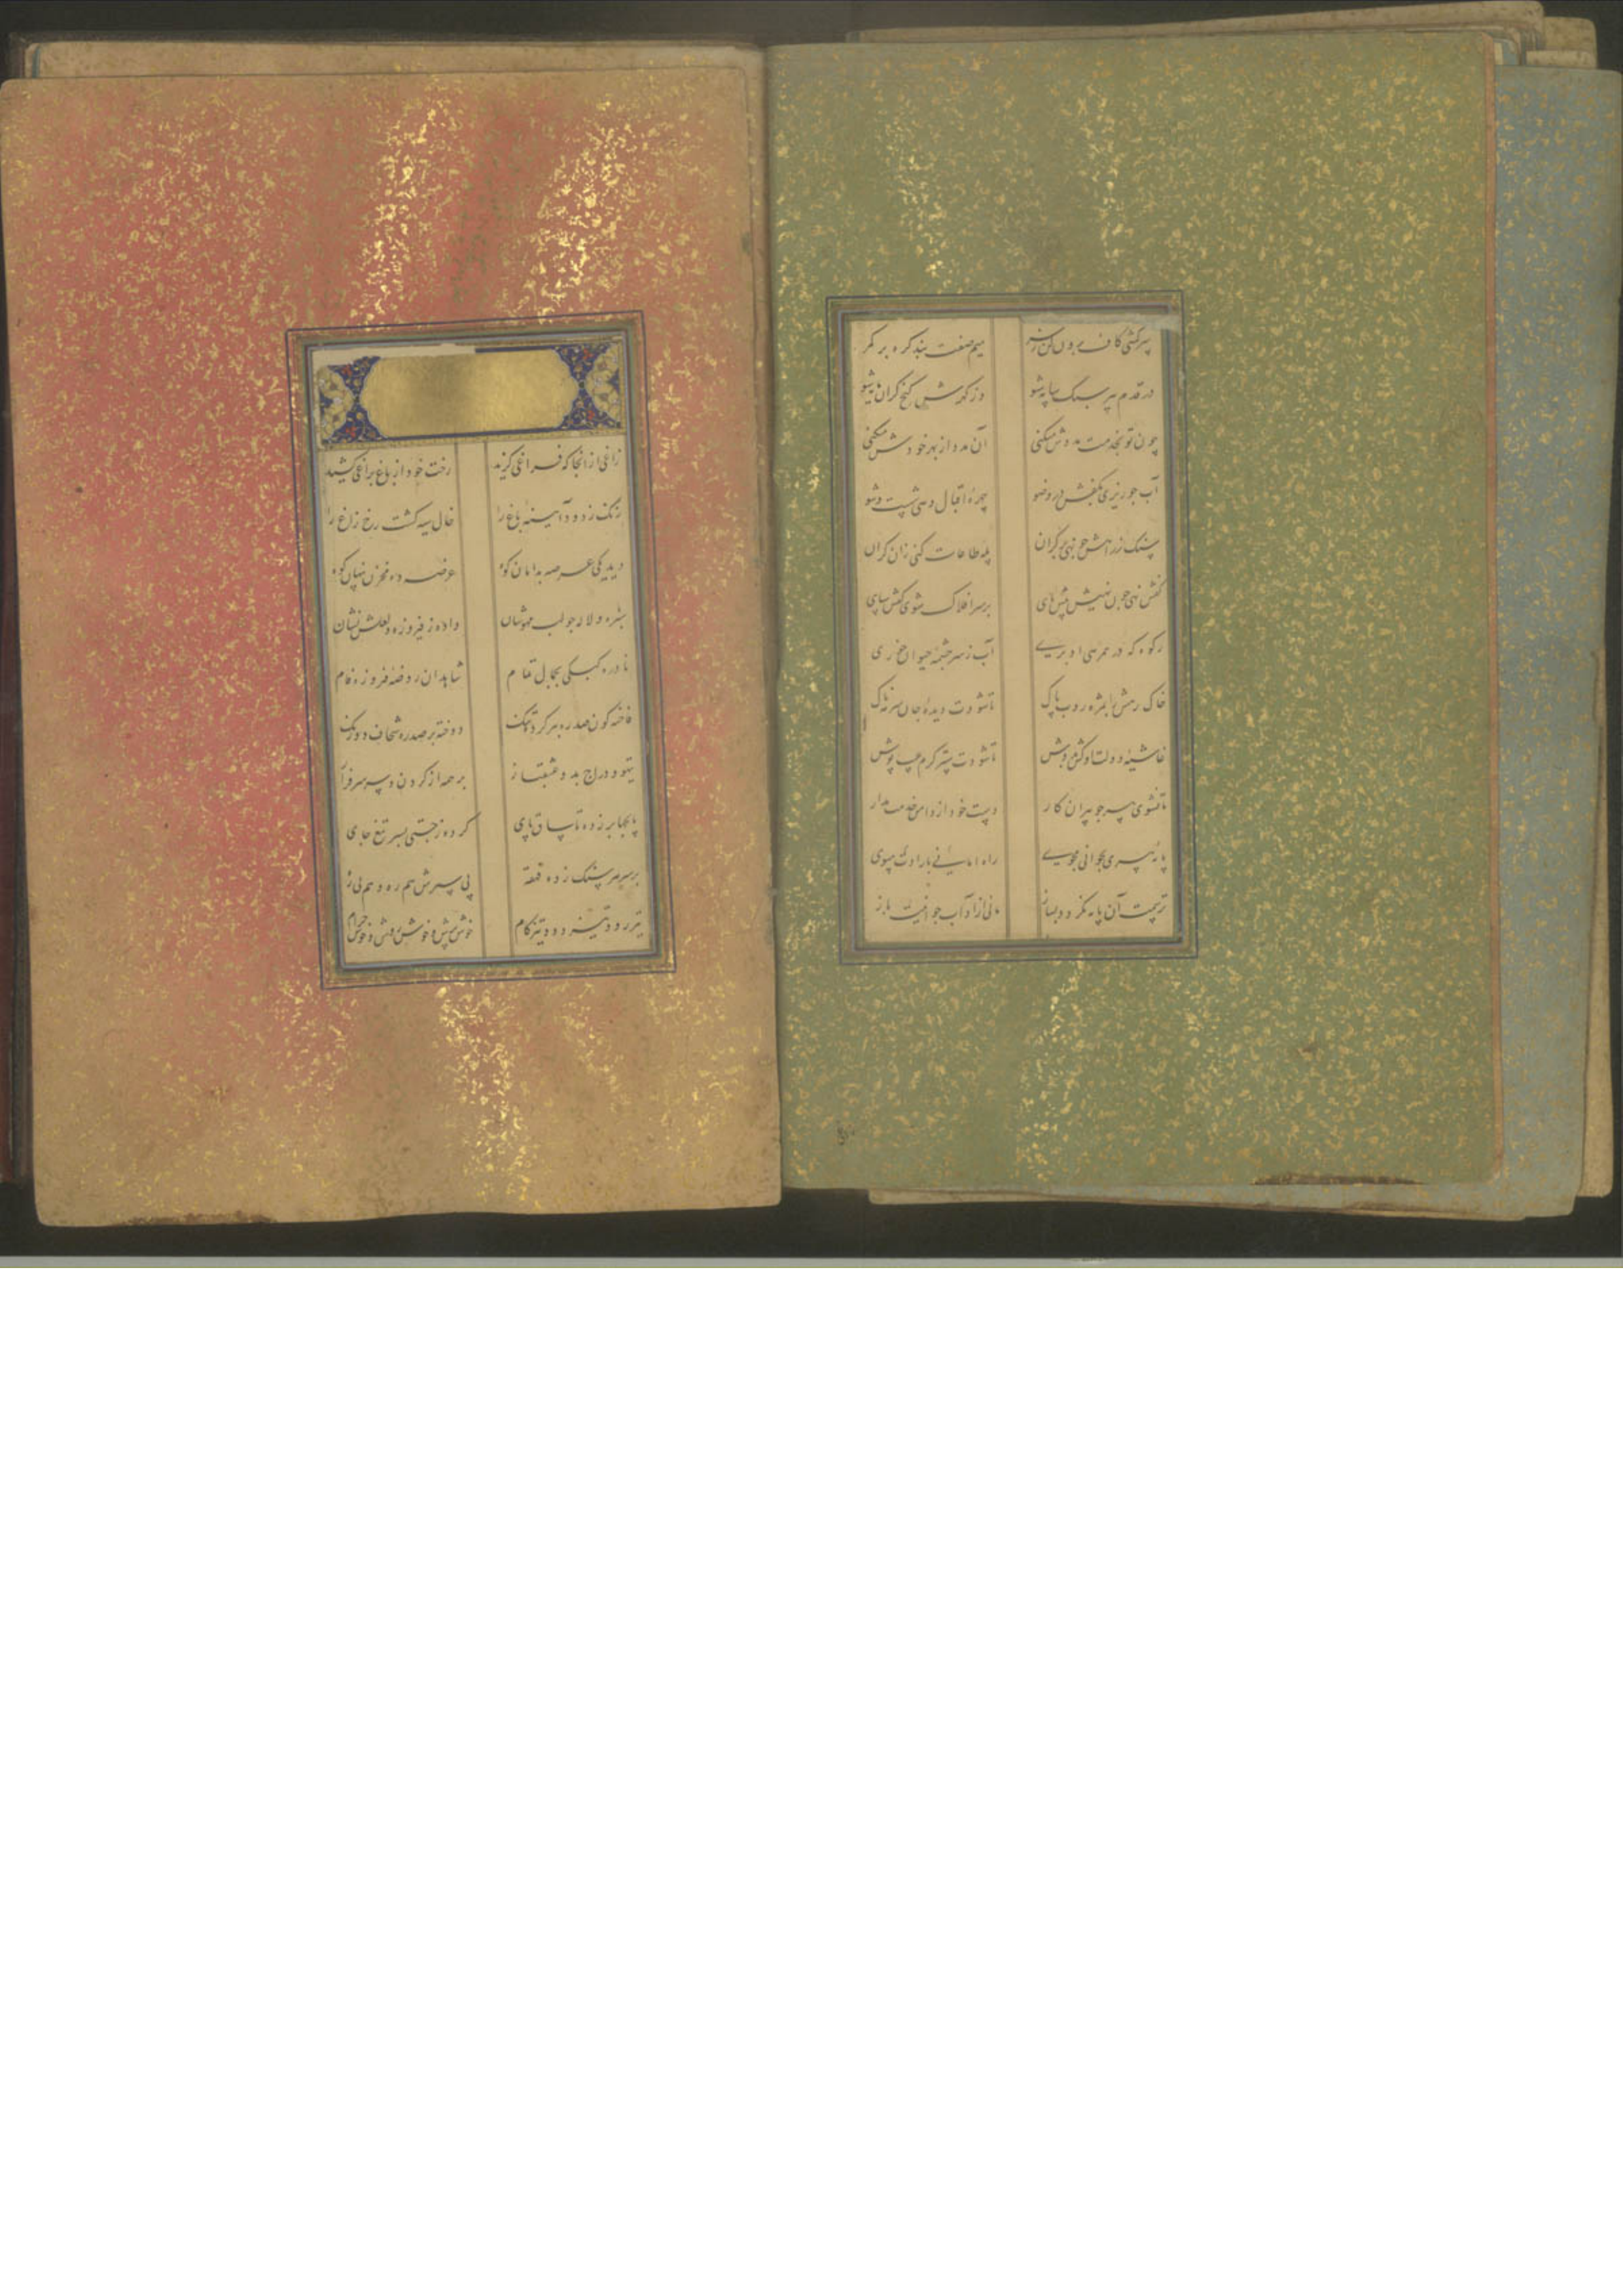 سرکشی کاف برون کن ز سر میم صفت بند کره بر کمر
در قدم پیر سبک سایه شو وز کهرش کنج کران مایه شو
چون تو بخدمت مددش میکنی آن مدد از بهر خودش میکنی
آب چو ریزی بکفش در وضو چهرهٔ اقبال دهی شست و شو
سنک زراهش چو نهی بر کران پله طاعات کنی زان کران
کفش نهی چون نهیش پیش پای بر سر افلاک شوی کفش سای
رکوه که در همرهی او بری آب ز سرچشمه حیوان خوری
خاک رهش با مژه روب پاک تا شودت دیدهٔ جان سرمه ناک
غاشیهٔ دولت او کش بدوش تا شودت ستر کرم عیب پوش
تا نشوی پیر چو پیران کار دست خود از دامن خدمت مدار
پایهٔ پیری بجوانی بجوی راه امانی بارادت بپوی
تربیت آن پایه نکردد بساز
زاغی از آنجا که فراغی کزید رخت خود از باغ براغی کشید
زنک زدود آینهٔ باغ را خال سیه کشت رخ زاغ را
دید یکی عرصه بدامان کوه عرضه ده مخزن پنهان کوه
سبزه و لاله چو لب مهوشان داده ز فیروزه و لعلش نشان
نادره کبکی بجمال تمام شاهد آن روضهٔ فیروزه فام
فاخته کون صدره ببر کرده تنک دوخته بر صدره سجاف دورنک
تیهو و دراج بدو عشقباز بر همه از کردن و سر سرفراز
پایچها برزده تا ساق پای کرده ز چستی بسر تیغ جای
بر سر هر سنک زده قهقهه پی سپرش هم ره و هم بی ره
تیزرو و تیزدو و تیزکام خوش روش و خوش پرش و خوش خرام